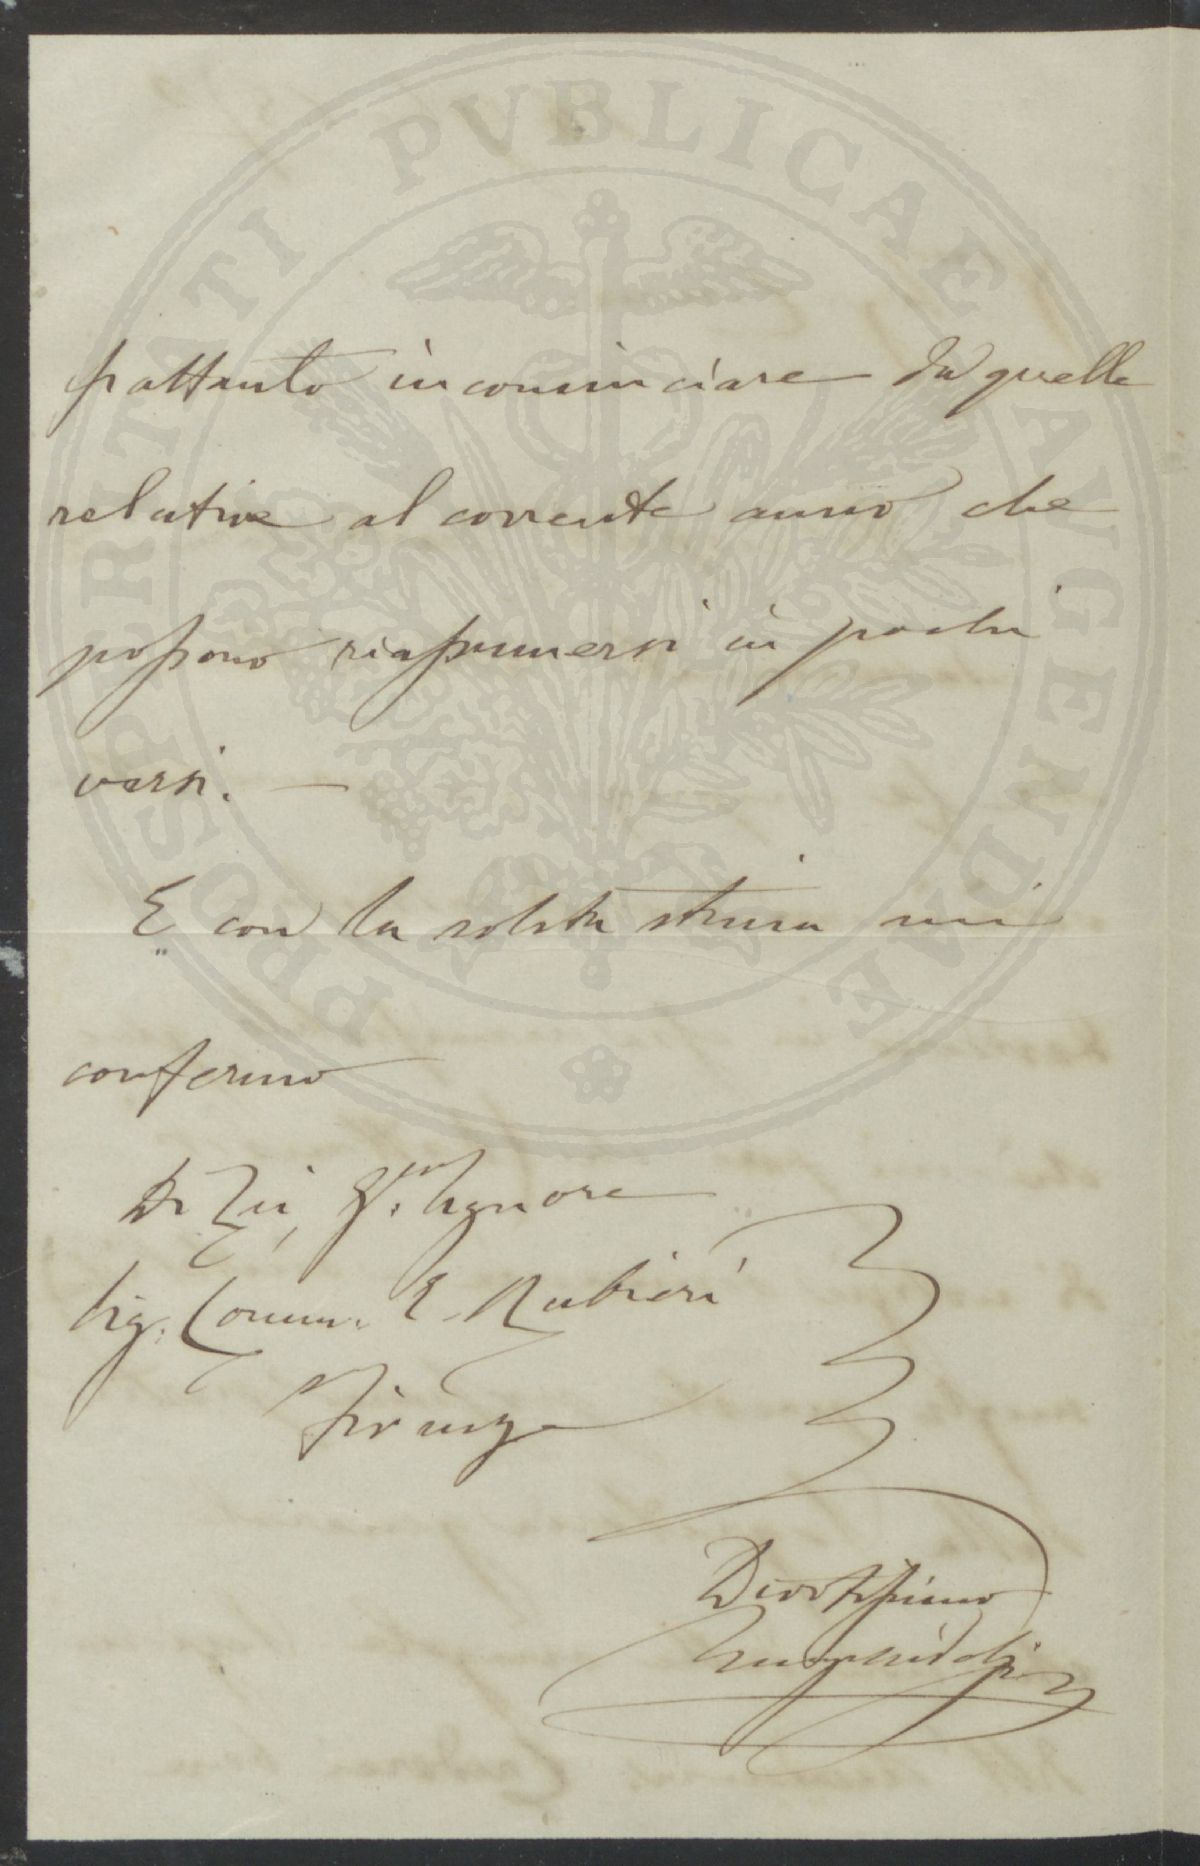 PROSPERITATI PUBLICAE AUGENDAE
frattanto incominciare da quelle
relative al corrente anno che
possono riassumersi in pochi
versi. —
E con la solita stima mi
confermo
Di Lei, Ill. Signore
Sig: Comm. E Rubieri
Firenze
Devotissimo